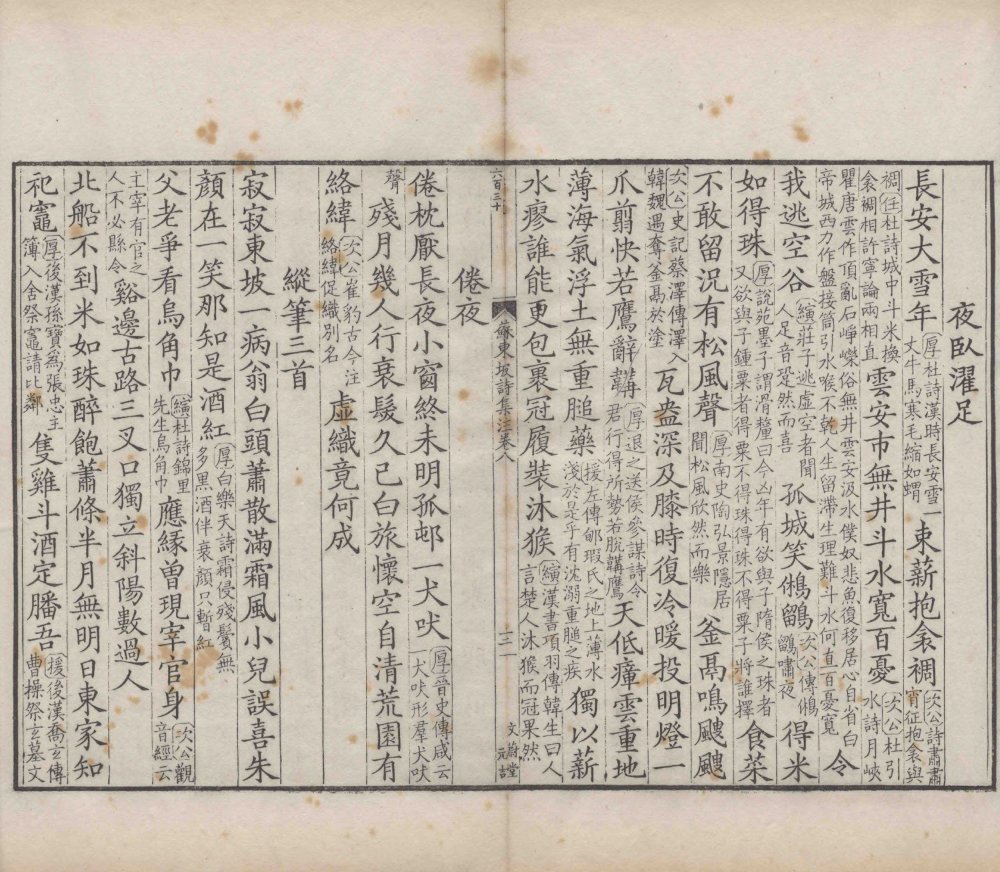 夜臥濯足
長安大雪年厚杜詩漢時長安雪一丈牛馬寒毛縮如蝟束薪抱衾裯次公詩肅肅宵征抱衾與
裯任杜詩城中斗米換衾裯相許寧論兩相直雲安市無井斗水寬百憂次公杜引水詩月峽
瞿唐雲作頂亂石崢嶸俗無井雲安汲水僕奴悲魚復移居心自省白帝城西万作盤接筒引水喉不乾人生留滯生理難斗水何直百憂寬令
我逃空谷縯莊子逃虛空者聞人足音跫然而喜孤城笑鵂鶹次公傳鵂鶹嘯夜得米
如得珠厚說苑墨子謂滑釐曰今凶年有欲與子隋侯之珠者又欲與子鍾粟者得粟不得珠得珠不得粟子將誰擇食菜
不敢留況有松風聲厚南史陶弘景隱居聞松風欣然而樂釜鬲鳴颼颼
次公史記蔡澤傳澤入韓魏遇奪釜鬲於塗瓦盎深及膝時復冷暖投明燈一
爪剪快若鷹辭韝厚退之送侯參謀詩今君行得所勢若脫韝鷹天低瘴雲重地
薄海氣浮土無重膇藥援左傳郇瑕氏之地土薄水淺於是乎有沈溺重膇之疾獨以薪
水瘳誰能更包裹冠履裝沐猴縯漢書項羽傳韓生曰人言楚人沐猴而冠果然
六百三十
蘇東坡詩集注卷八
文蔚堂
倦夜
倦枕厭長夜小窗終未明孤邨一犬吠厚晉史傅咸云一犬吠形羣犬吠
聲殘月幾人行衰鬢久已白旅懷空自清荒園有
絡緯次公崔豹古今注絡緯促織別名虛織竟何成
縱筆三首
寂寂東坡一病翁白頭蕭散滿霜風小兒誤喜朱
顏在一笑那知是酒紅厚白樂天詩霜侵殘鬢無多黑酒伴衰顏只暫紅
父老爭看烏角巾縯杜詩錦里先生烏角巾應緣曾現宰官身次公觀音經云
主宰有官之人不必縣令谿邊古路三叉口獨立斜陽數過人
北船不到米如珠醉飽蕭條半月無明日東家知
祀竈厚後漢孫寶為張忠主簿入舍祭竈請比鄰隻雞斗酒定膰吾援後漢喬玄傳曹操祭玄墓文